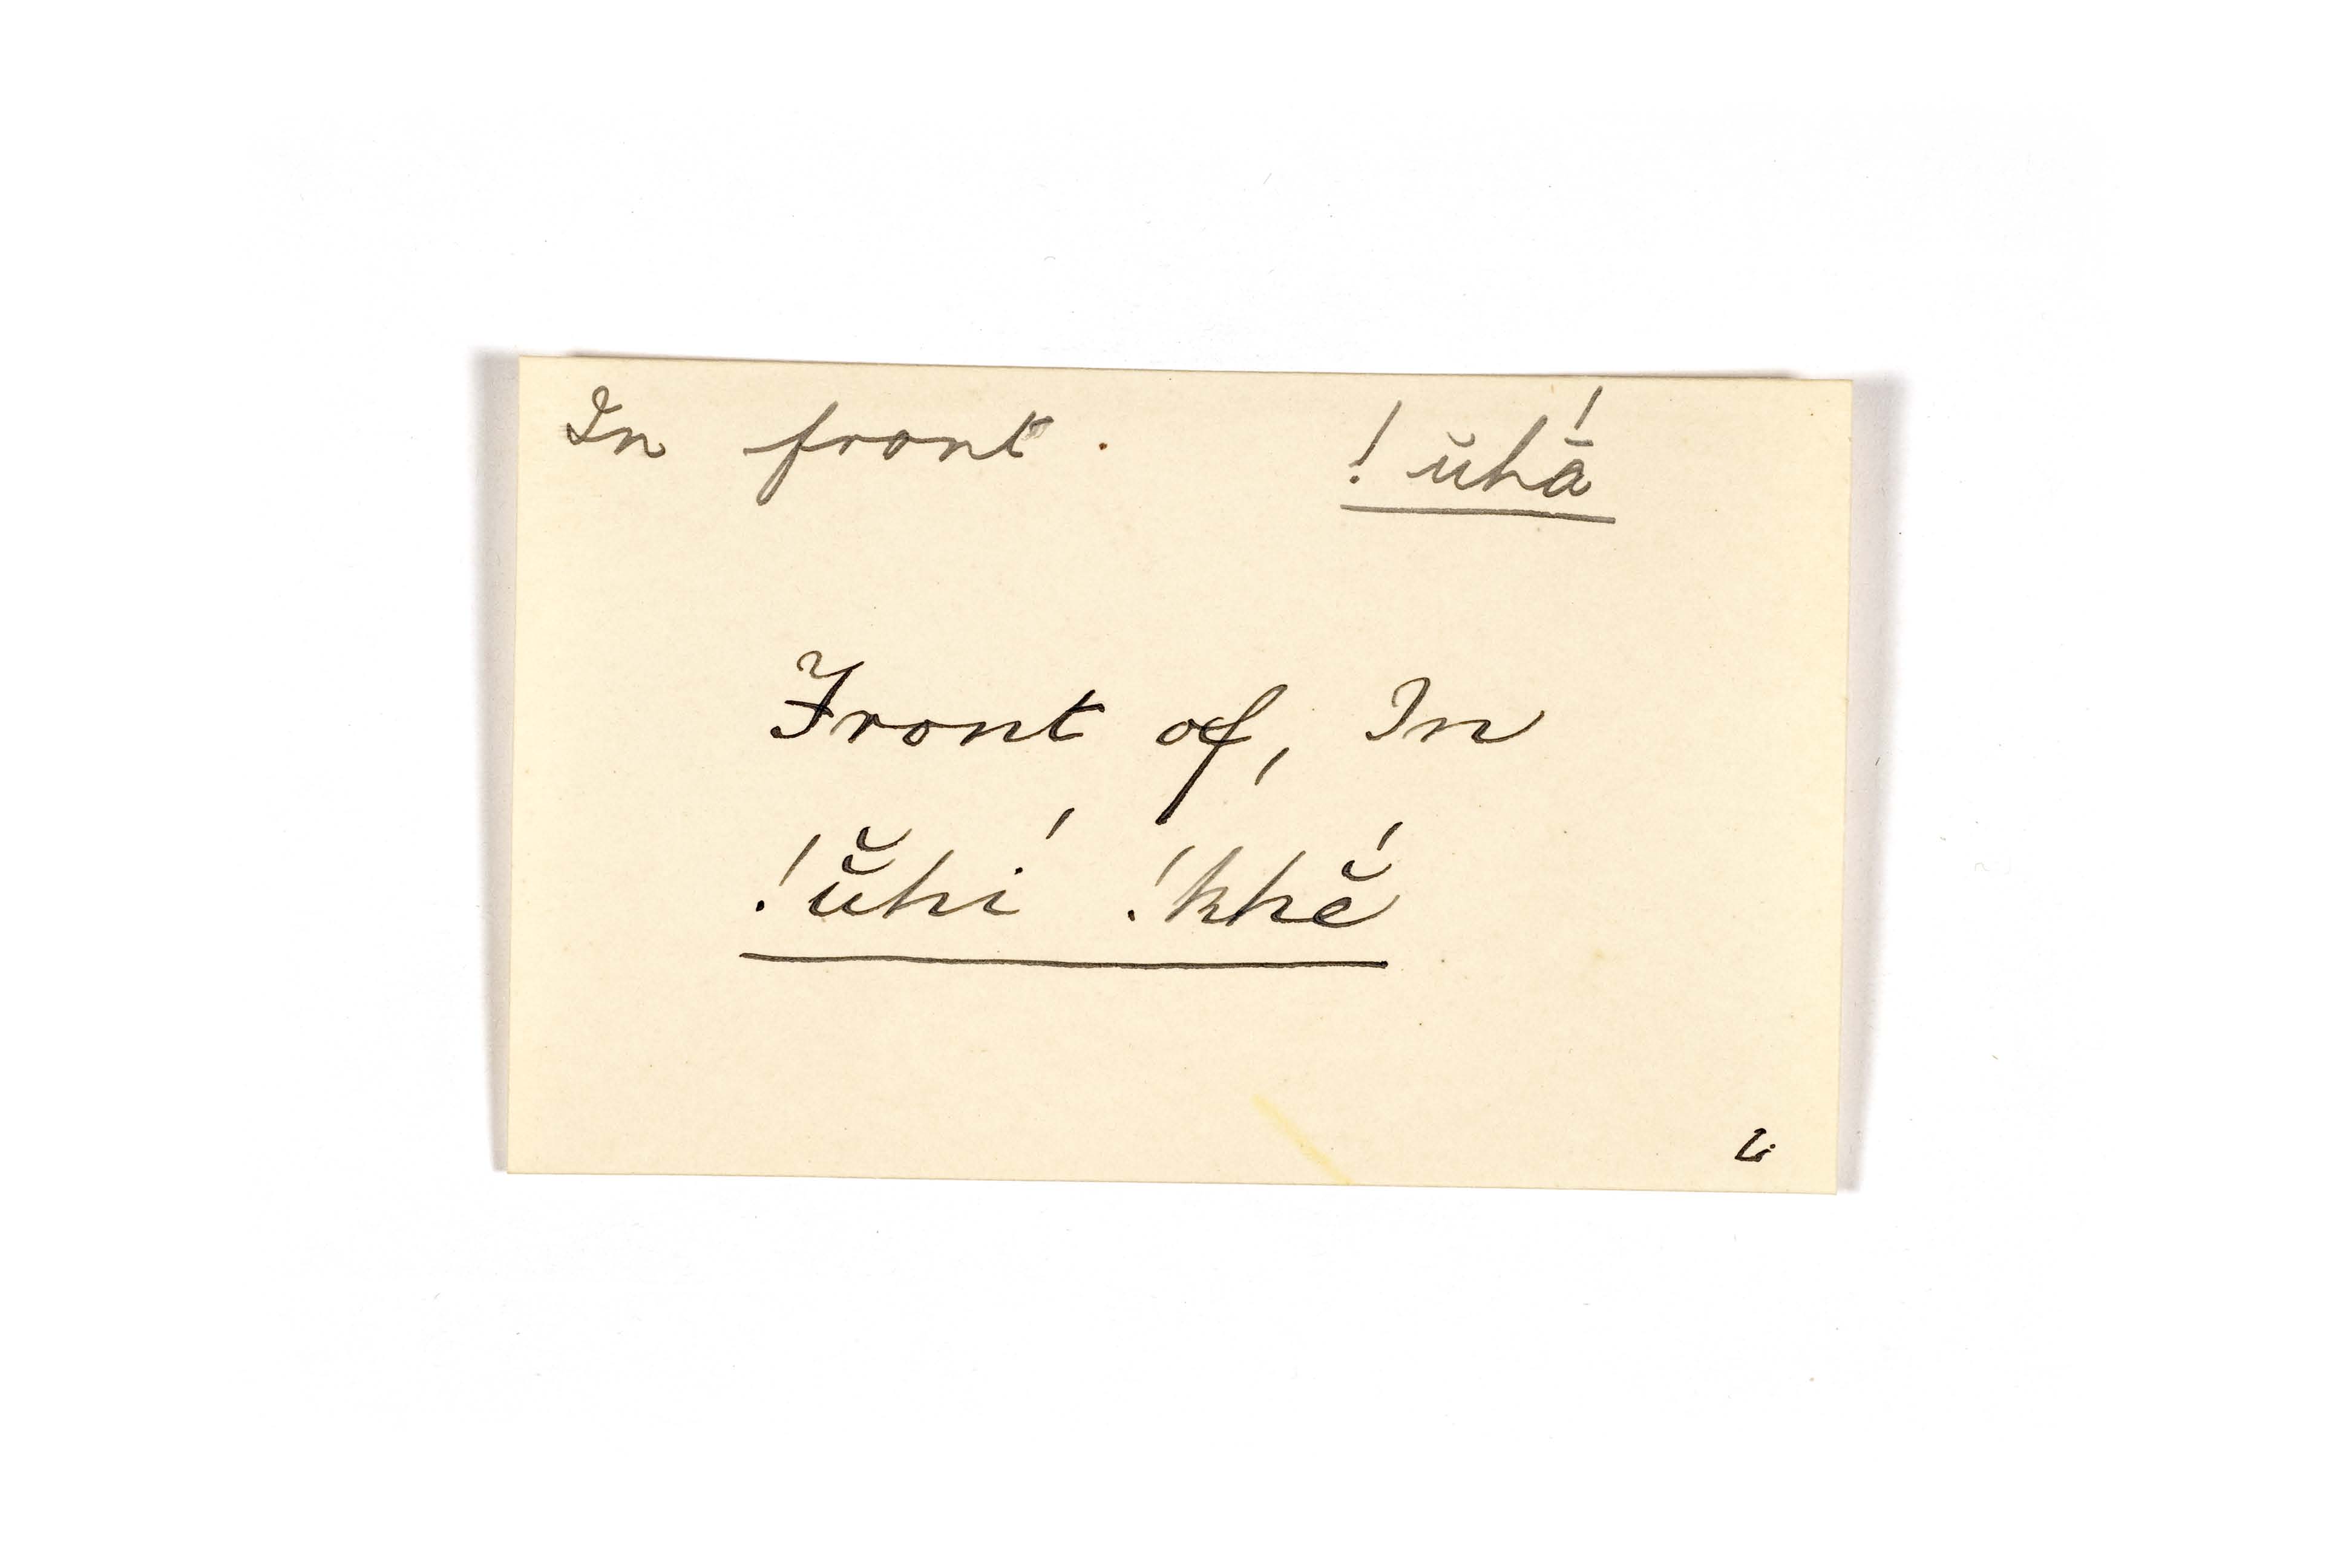 In front. !ŭhā́
Front of, In
!ŭ̆hi′ !khĕ́